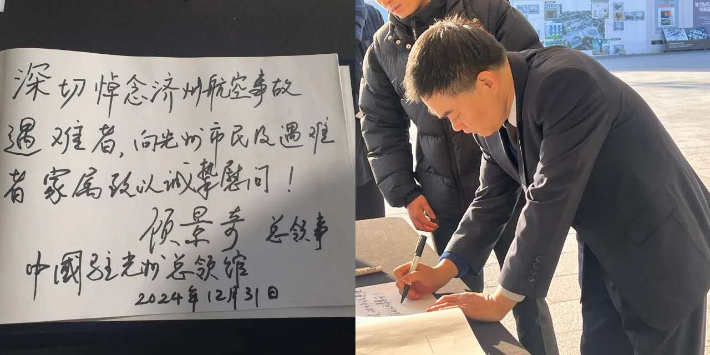 深切悼念济州航空事故
遇难者，向光州市民及遇难
者家属致以诚挚慰问！
顾景奇 总领事
中國驻光州总领馆
2024年12月31日